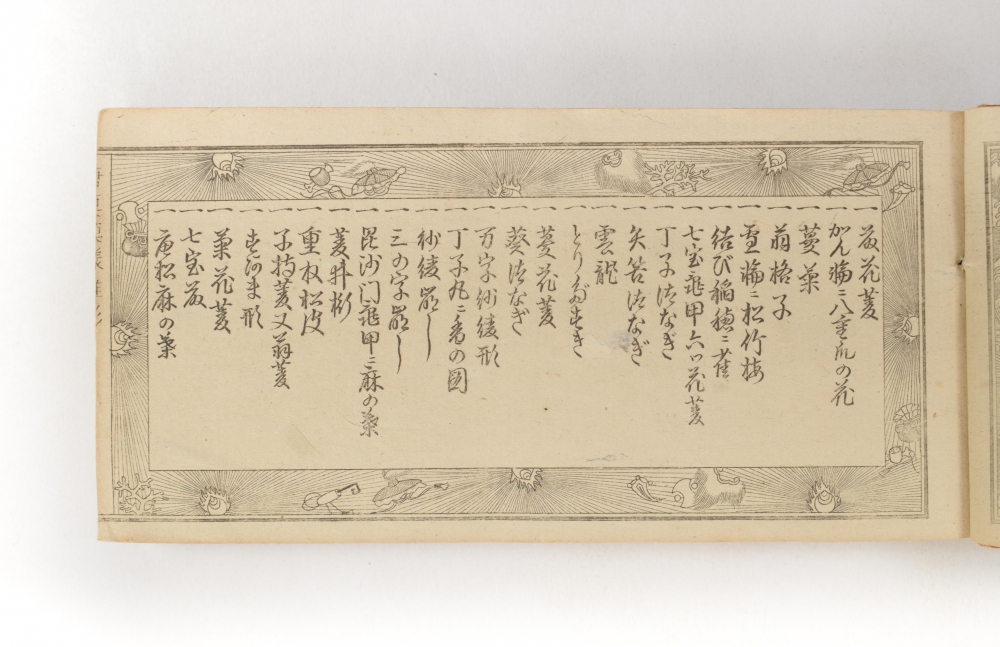 一 花菱
一 かん輪ニ八重瓜の花
一 蔓
一 翁格子
一 雪輪ニ松竹梅
一 結び稲穂ニ雀
一 七宝亀甲六ツ花菱
一 丁子つなぎ
一 矢筈つなぎ
一 雲龍
一 とりだすき
一 蔓花菱
一 葵つなぎ
一 万字紗綾形
一 丁子丸ニ香の図
一 紗綾崩し
一 三の字崩し
一 毘沙门亀甲ニ麻の葉
一 菱井桁
一 重ね松皮
一 子持菱又翁菱
一 すはま形
一 葉花菱
一 七宝
一 唐松麻の葉